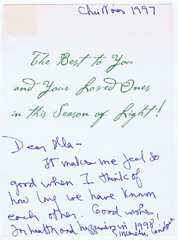 Christmas 1997
The Best to You
and Your Loved Ones
in this Season of Light!
Dear Ala–
It makes me feel so
good when I think of
how long we have known
each other. Good wishes,
in health and happiness in 1998,